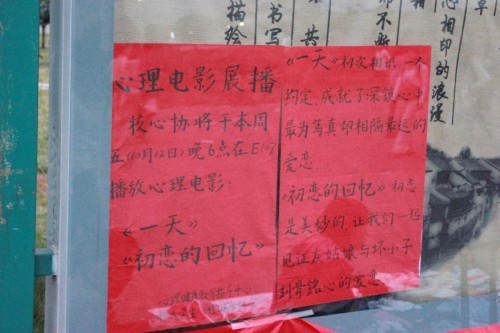 心理电影展播
校心协将于本周
五(10月12日)晚6点在E107
播放心理电影:
《一天》
《初恋的回忆》
《一天》初次相识,一个
约定,成就了深镌心中
最为笃真却相隔最远的
爱恋
《初恋的回忆》初恋
是美妙的,让我们一起
见证灰姑娘与坏小子
刻骨铭心的爱恋
描绘
书写
共
不断
心相印的浪漫